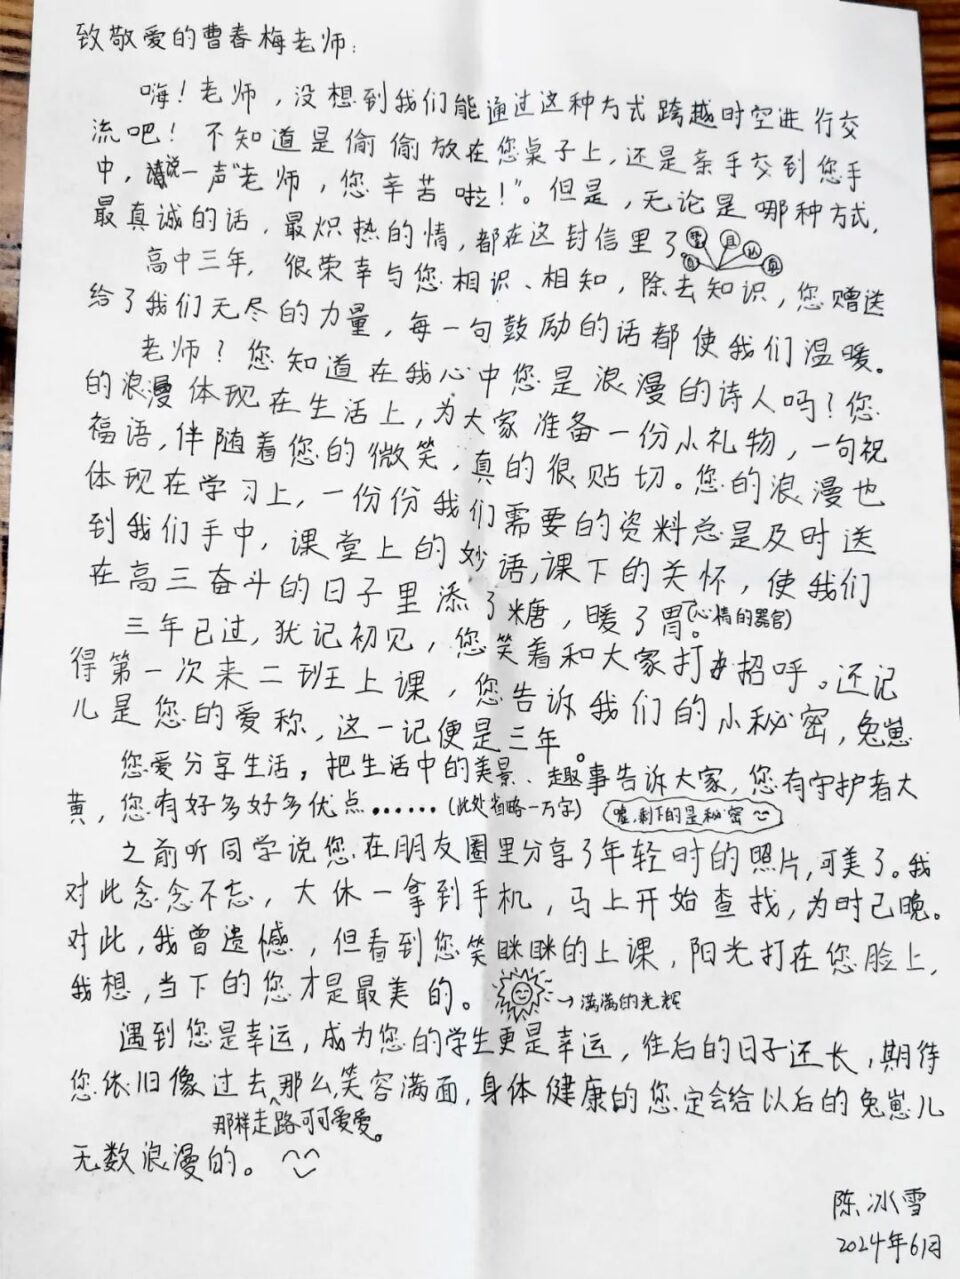 致敬爱的曹春梅老师:
嗨!老师,没想到我们能通过这种方式跨越时空进行交
流吧!不知道是偷偷放在您桌子上,还是亲手交到您手
中,说一声"老师,您辛苦啦!"。但是,无论是哪种方式,
最真诚的话,最炽热的情,都在这封信里了
且认真
高中三年,很荣幸与您相识、相知,除去知识,您赠送
给了我们无尽的力量,每一句鼓励的话都使我们温暖。
老师?您知道在我心中您是浪漫的诗人吗?您
的浪漫体现在生活上,为大家准备一份小礼物,一句祝
福语,伴随着您的微笑,真的很贴切。您的浪漫也
体现在学习上,一份份我们需要的资料总是及时送
到我们手中,课堂上的妙语,课下的关怀,使我们
在高三奋斗的日子里添了糖,暖了胃。(心情的器官)
三年已过,犹记初见,您笑着和大家打招呼。还记
得第一次来二班上课,您告诉我们的小秘密,兔崽
儿是您的爱称,这一记便是三年。
您爱分享生活,把生活中的美景、趣事告诉大家,您有守护者大
黄,您有好多好多优点……(此处省略一万字)嘘,剩下的是秘密
之前听同学说您在朋友圈里分享了年轻时的照片,可美了。我
对此念念不忘,大休一拿到手机,马上开始查找,为时已晚。
对此,我曾遗憾,但看到您笑眯眯的上课,阳光打在您脸上,
我想,当下的您才是最美的。→满满的光辉
遇到您是幸运,成为您的学生更是幸运,往后的日子还长,期待
您依旧像过去那么笑容满面,身体健康的您定会给以后的兔崽儿
那样走路可可爱爱。
无数浪漫的。
陈冰雪
2024年6月